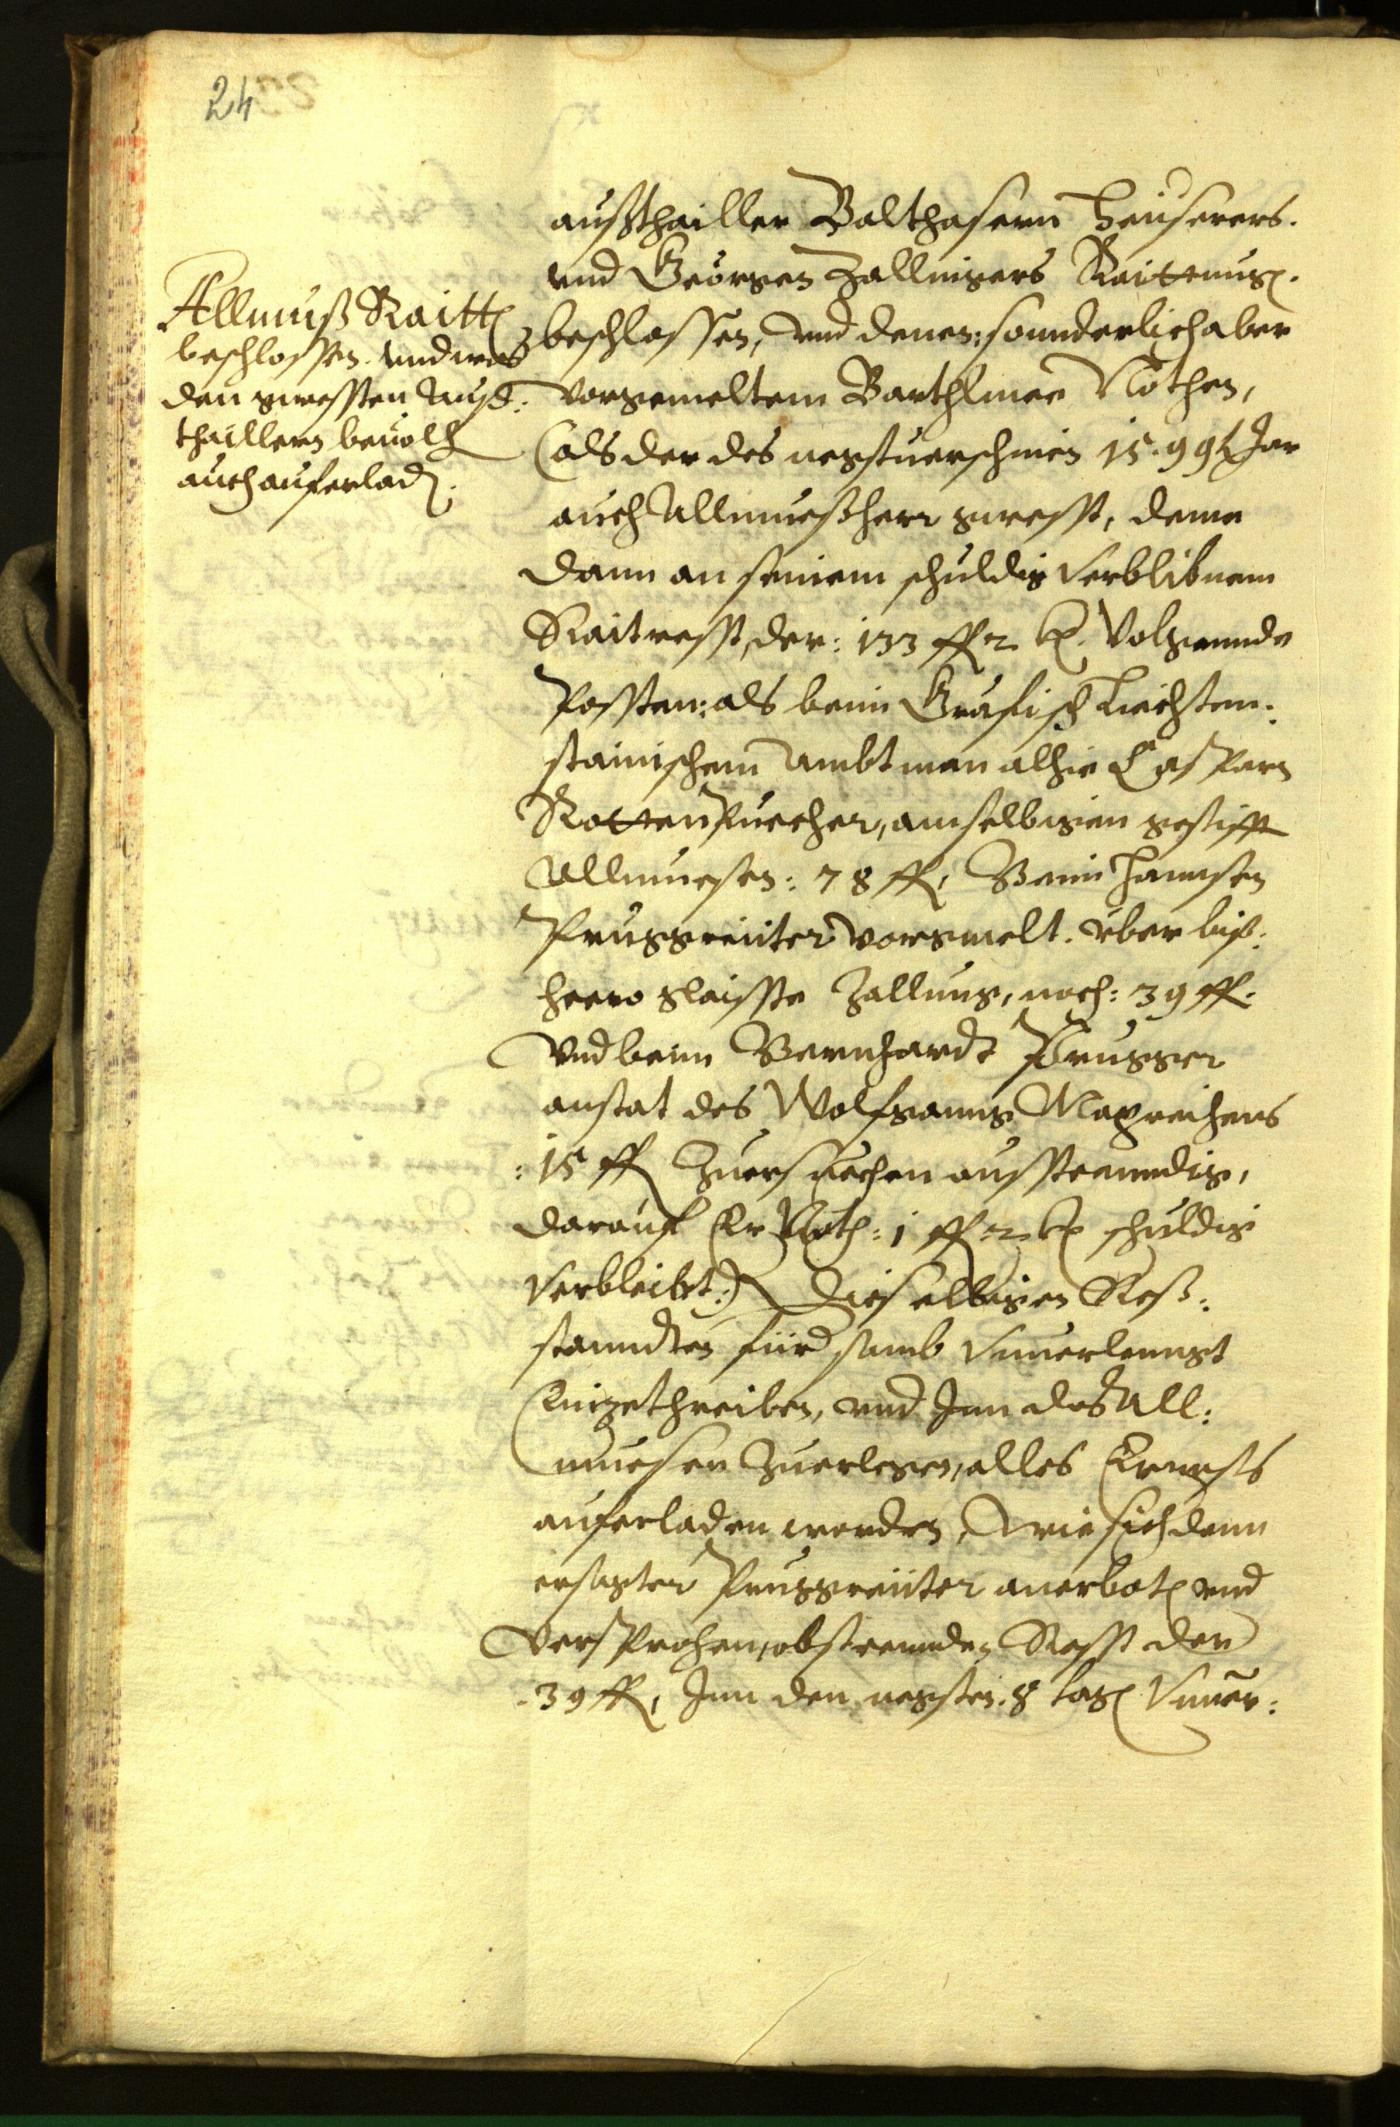 24
Allmueß Raitt
beschlossen. vnd was
den gewessten Auß¬
thaillern beuolh
auch auferlad.
außthailler Balthasern Heuserers.
vnd Georgen Zallingers Raittung.
beschlossen, vnd denen: sonnderlich aber
vorgemeltem Barthlmee Nothen,
(als der des negstuerschinen 15.99 Jar
auch Allmueßherr gewesst, deme
dann an seinem schuldig verblibnem
Raitresst, der: 133 fl 2 kr. Volgennde
Possten: als beim Grafisch Liechten¬
stainischem Ambtman alhie Casparn
Rottenpuecher, am selbigen gestifft
Allmuesen: 78 fl, Beim Hannsen
Pruggreiiter vorgemelt. über biß¬
heero glaisste Zallung, noch: 39 fl.
Vnd beim Bernhardt Prugger
anstat des Wolfganng Mayreihers
: 15 fl Zuersuechen ausstenndig,
darauf Er Noth: 1 fl 2 kr schuldig
verbleibt:) Dieselbigen Resst¬
stanndten fürdersamb vnuerlenngt
Einzethreiben, vnd Inn das All¬
muesen Zuerlegen, alles Ernnsts
auferladen worden, Wie sich denn
ersagter Pruggreiiter anerbot vnd
versprohen, obsteennden Resst der
39 fl, Inn den negsten. 8 tag vnuer¬